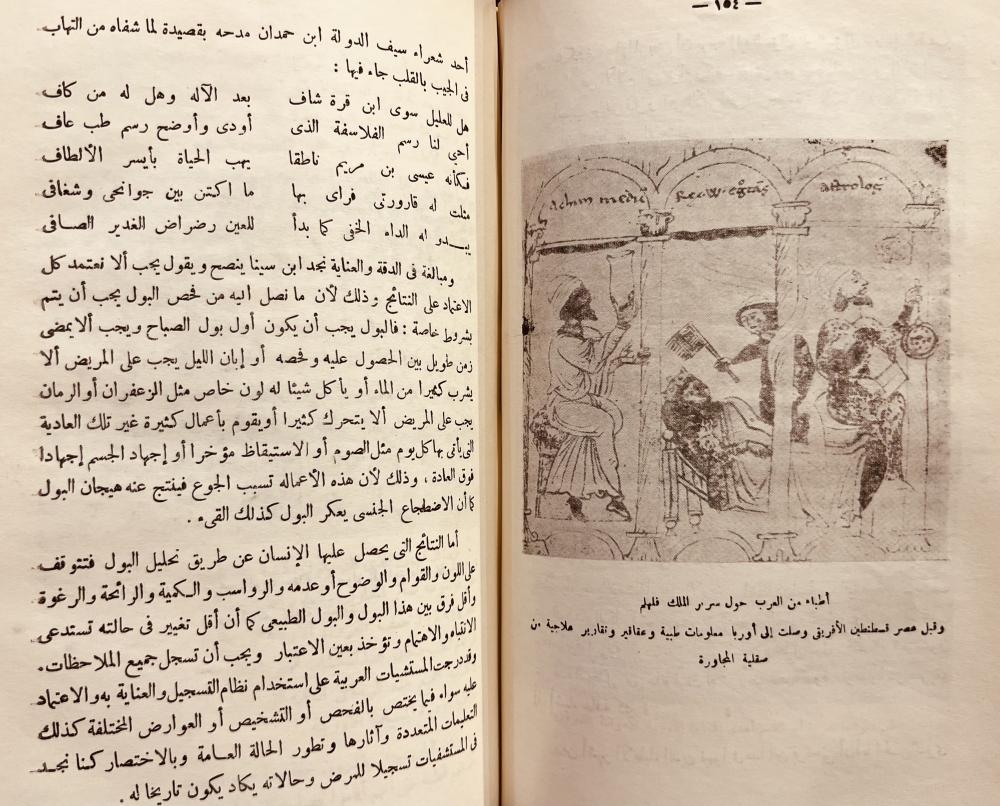 — ١٥٤ —
achim medic
Rex W. egrotās
astrolog
أطباء من العرب حول سرير الملك فلهلم
وقبل عصر قسطنطين الأفريقى وصلت إلى أوربا معلومات طبية وعقاقير وتقارير علاجية من
صقلية المجاورة
أحد شعراء سيف الدولة ابن حمدان مدحه بقصيدة لما شفاه من التهاب
فى الجيب بالقلب جاء فيها :
هل للعليل سوى ابن قرة شاف بعد الآله وهل له من كاف
أحيى لنا رسم الفلاسفة الذى أودى وأوضح رسم طب عاف
فكأنه عيسى بن مريم ناطقا يهب الحياة بأيسر الألطاف
مثلت له قارورتى فراى بها ما اكتن بين جوانحى وشغافى
يبـدو له الداء الخفى كما بدأ للعين رضراض الغدير الصـافى
ومبالغة فى الدقة والعناية نجد ابن سينا ينصح ويقول يجب ألا نعتمد كل
الاعتماد على النتائج وذلك لأن ما نصل اليه من فحص البول يجب أن يتم
بشروط خاصة : فالبول يجب أن يكون أول بول الصباح ويجب ألا يمضى
زمن طويل بين الحصول عليه وفحصه أو إبان الليل يجب على المريض ألا
يشرب كثيرا من الماء أو يأكل شيئا له لون خاص مثل الزعفران أو الرمان
يجب على المريض ألا يتحرك كثيرا أويقوم بأعمال كثيرة غير تلك العادية
التى يأتى بها كل يوم مثل الصوم أو الاستيقاظ مؤخرا أو إجهاد الجسم إجهادا
فوق العادة ، وذلك لأن هذه الأعماله تسبب الجوع فينتج عنه هيجان البول
كما أن الاضطجاع الجنسى يعكر البول كذلك القىء .
أما النتائج التى يحصل عليها الإنسان عن طريق تحليل البول فتتوقف
على اللون والقوام والوضوح أو عدمه والرواسب والـكمية والرائحة والرغوة
وأقل فرق بين هذا البول والبول الطبيعى كما أن أقل تغيير فى حالته تستدعى
الانتباه والاهتمام وتؤخذ بعين الاعتبار ويجب أن تسجل جميع الملاحظات .
وقد درجت المستشيات العربية على استخدام نظام التسجيل والعناية به والاعتماد
عليه سواء فيما يختص بالفحص أو التشخيص أو العوارض المختلفة كذلك
التعليمات المتعددة وآثارها وتطور الحالة العـامة وبالاختصار كمنا نجـد
فى المستشفيات تسجيلا للمرض وحالاته يكاد يكون تاريخا له .